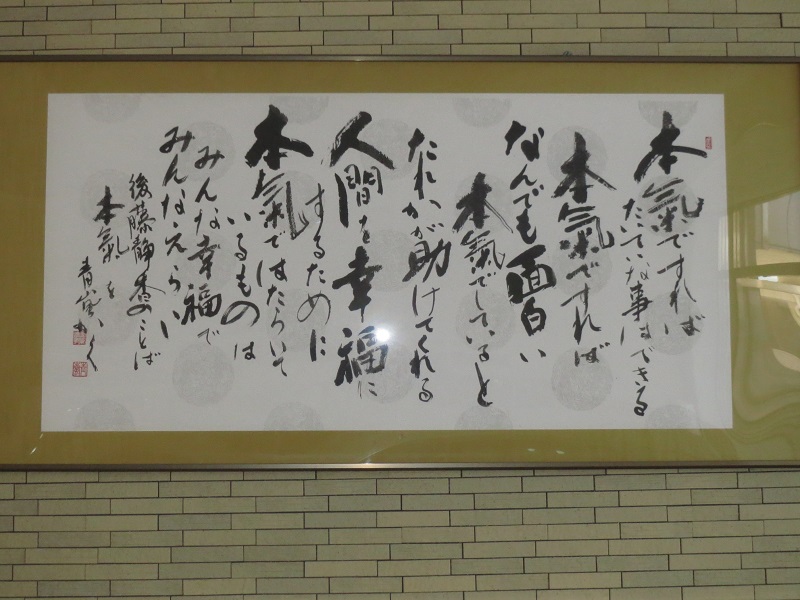 本氣ですれば
たいていな事はできる
本氣ですれば
なんでも面白い
本氣でしていると
たれかが助けてくれる
人間を幸福に
するために
本氣ではたらいて
いるものは
みんな幸福で
みんなえらい
後藤静香のことば
本氣を